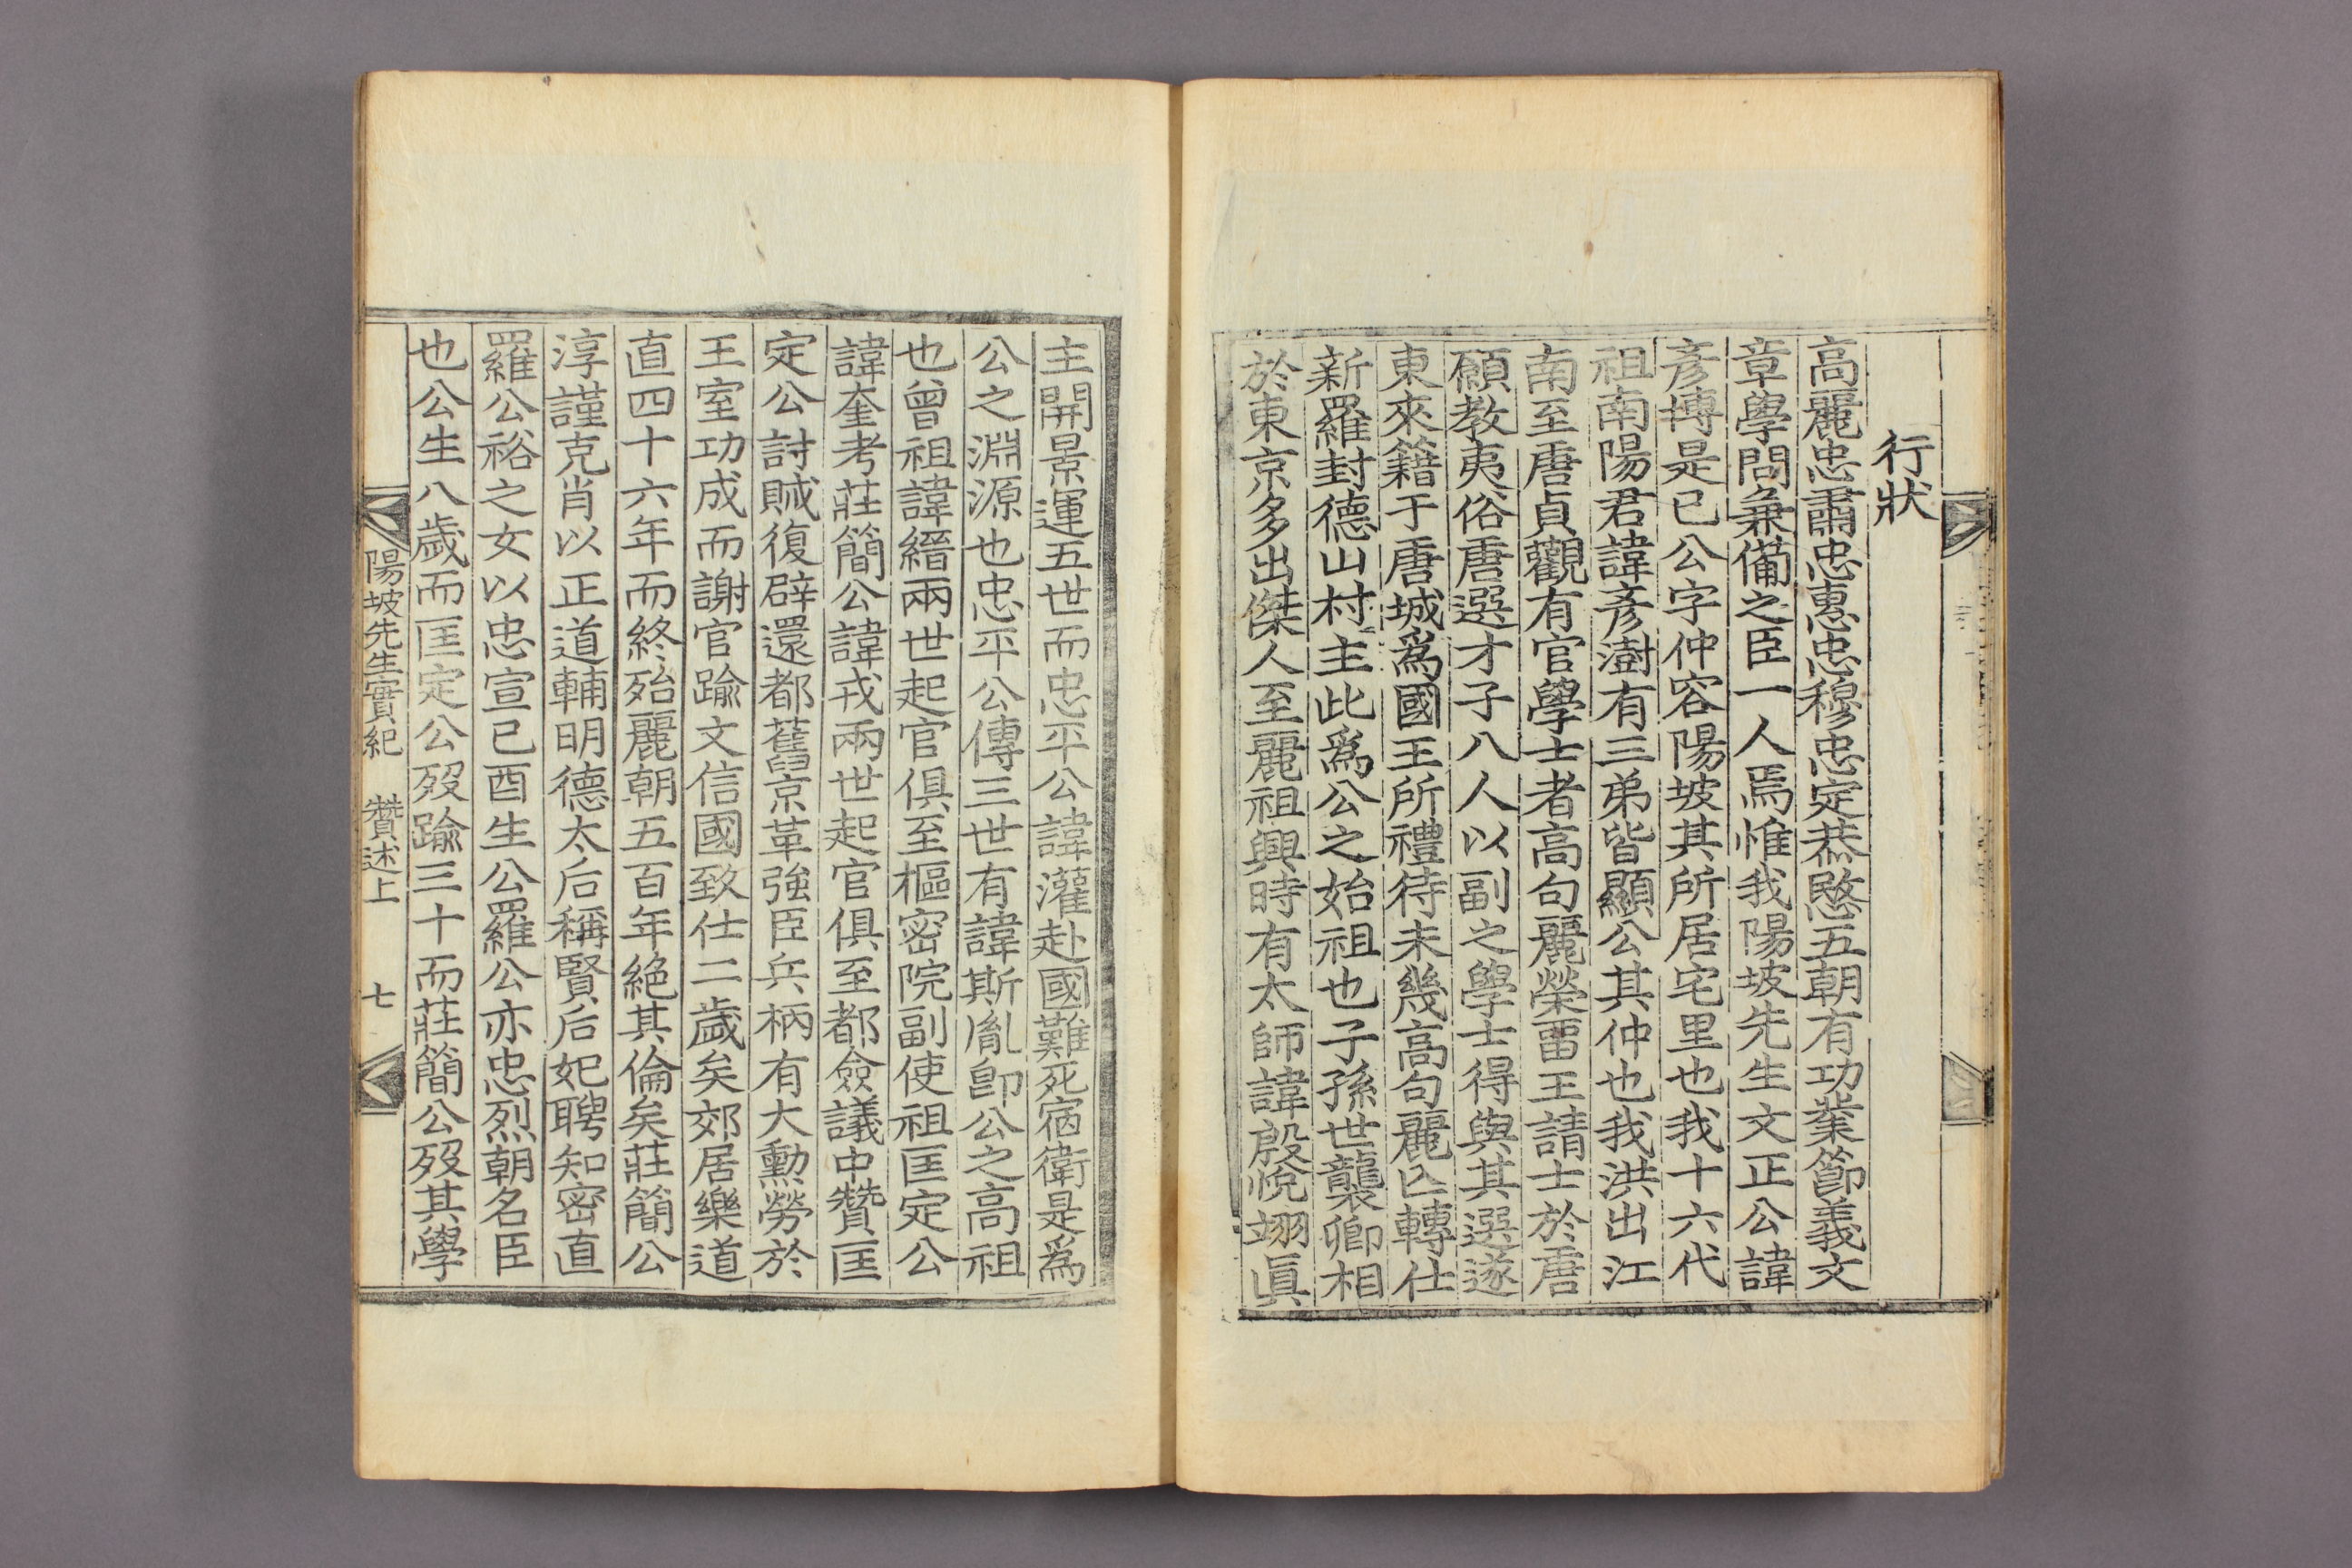 行狀
高麗忠肅忠惠忠穆忠定恭愍五朝有功業節義文
章學問兼備之臣一人焉惟我陽坡先生文正公諱
彥博是已公字仲容陽坡其所居宅里也我十六代
祖南陽君諱彥澍有三弟皆顯公其仲也我洪出江
南至唐貞觀有官學士者高句麗榮畱王請士於唐
願教夷俗唐選才子八人以副之學士得與其選遂
東來籍于唐城爲國王所禮待未幾高句麗亾轉仕
新羅封德山村主此爲公之始祖也子孫世襲卿相
於東京多出傑人至麗祖興時有太師諱殷悅翊眞
主開景運五世而忠平公諱灌赴國難死宿衛是爲
公之淵源也忠平公傳三世有諱斯胤卽公之高祖
也曾祖諱縉兩世起官俱至樞密院副使祖匡定公
諱奎考莊簡公諱戎兩世起官俱至都僉議中贊匡
定公討賊復辟還都舊京革強臣兵柄有大勳勞於
王室功成而謝官踰文信國致仕二歲矣郊居樂道
直四十六年而終殆麗朝五百年絕其倫矣莊簡公
淳謹克肖以正道輔明德太后稱賢后妃聘知密直
羅公裕之女以忠宣己酉生公羅公亦忠烈朝名臣
也公生八歲而匡定公歿踰三十而莊簡公歿其學
陽坡先生實紀 贊述上 七